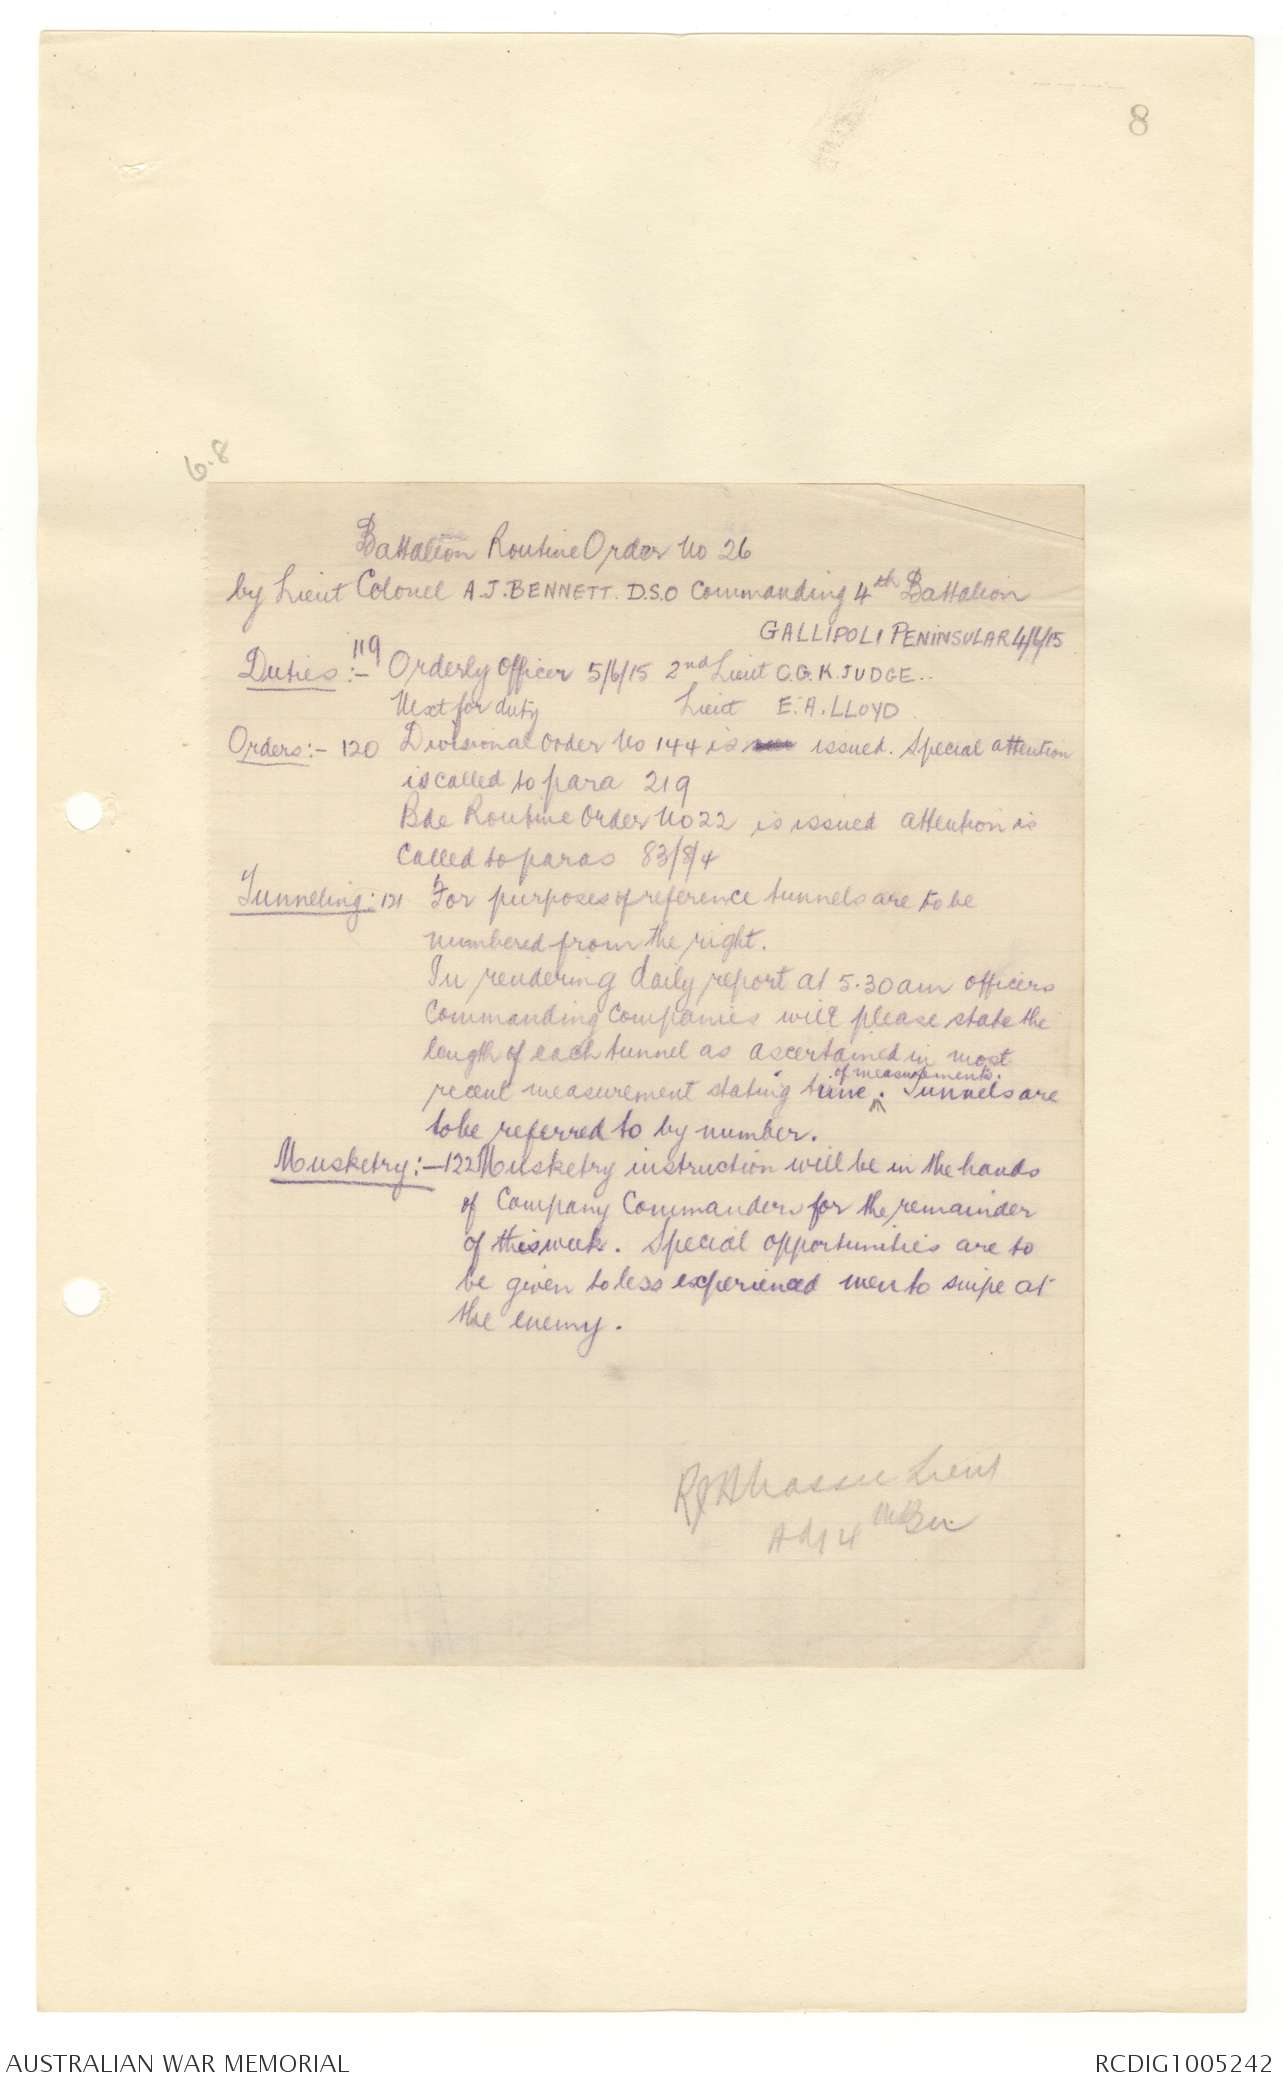 8
6.8
Battalion Routine Order No 26
by Lieut Colonel A.J. BENNETT. D.S.O Commanding 4th Battalion
GALLIPOLI PENINSULAR 4/6/15
Duties :- 119 Orderly Officer 5/6/15 2nd Lieut C.G.K. JUDGE..
Next for duty Lieut E.A. LLOYD
Orders:- 120 Divisional order No 144 is issued. Special attention
is called to para 219
Bde Routine Order No 22 is issued attention is
called to paras 83/8/4
Tunneling: 121 For purposes of reference tunnels are to be
numbered from the right.
In rendering daily report at 5.30 am officers
Commanding Companies will please state the
length of each tunnel as ascertained in most
recent measurement stating time of measurements. Tunnels are
to be referred to by number.
Musketry:- 122 Musketry instruction will be in the hands
of Company Commanders for the remainder
of this week. Special opportunities are to
be given to less experienced men to snipe at
the enemy.
Lieut
Adjt 4th Bn
AUSTRALIAN WAR MEMORIAL
RCDIG1005242